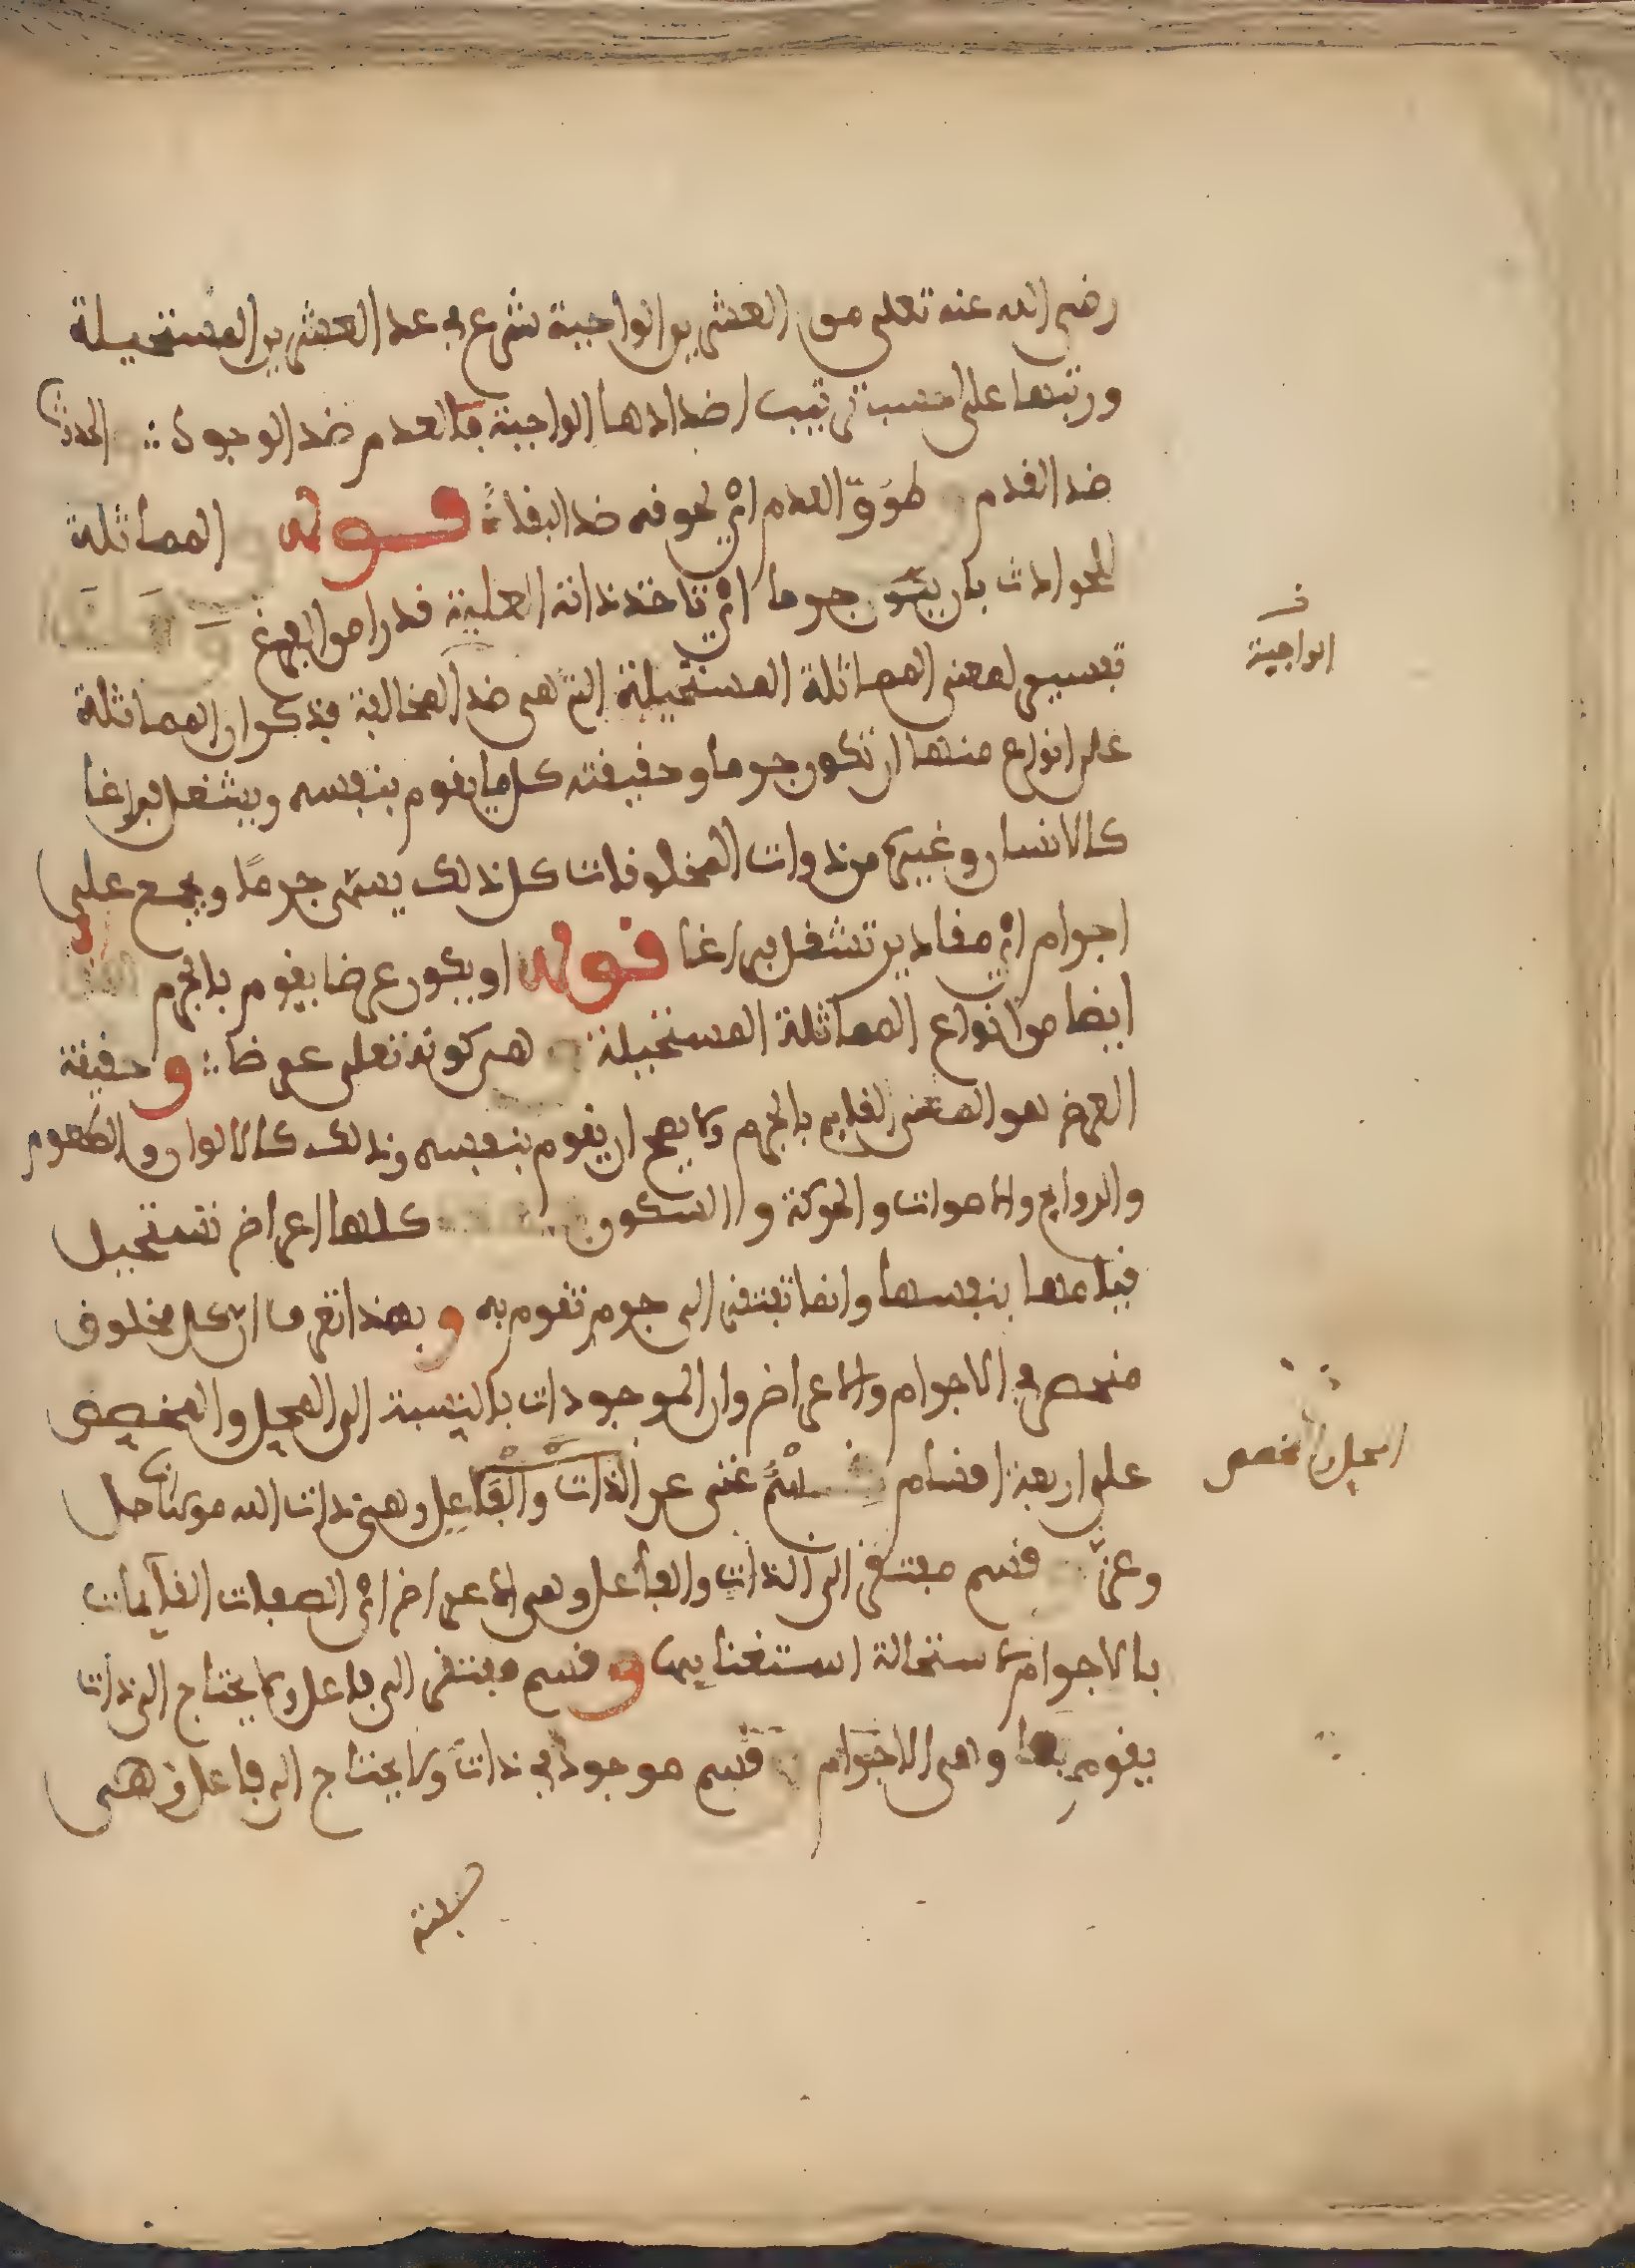 رضي الله عنه تعلى من العشرين الواجبة شرع في عد العشرين المستحيلة
ورتبها على حسب ترتيب اضدادها الواجبة فالعدم ضد الوجود ∴ الحدوث
ضد القدم طروّ العدم اي لحوقه ضد البقاء قوله المماثلة
للحوادث بان يكون جرما اي تاخذ ذاته العلية قدرا من الفراغ
تفسير لمعنى المماثلة المستحيلة التي هي ضد المخالفة فذكر ان المماثلة
على انواع منها ان تكون جرما وحقيقته كل ما يقوم بنفسه ويشغل فراغا
كالانسان وغيره من ذوات المخلوفات كل ذلك يسمى جرمًا ويجمع على
اجرام اي مفادير تشغل فراغا قوله او يكون عرضا يقوم بالجرم
ايضا من انواع المماثلة المستحيلة هي كونه تعلى عرضا ∴ و حقيقة
العرض هو المعنى القايم بالجرم ولا يصح ان يقوم بنفسه وذلك كالالوان والطعوم
والروايح والاصوات والحركة والسكون كلها اعراض تستحيل
قيامها بنفسها وانما تفتقر الى جرم تقوم به و بهذا تعرف ان كل مخلوق
منحصر في الاجرام والاعراض وان الموجودات بالنسبة الى المحل والمخصص
على اربعة اقسام قسم غني عن الذات والفاعل وهي ذات الله مولانا جل
وعز قسم مفتقر الى الذات والفاعل وهي الاعراض اي الصفات القايمات
بالاجرام لاستحالة استغنايها و قسم مفتقر الى فاعل ولا يحتاج الى ذات
يقوم بها وهي الاجرام قسم موجود في ذات ولا يحتاج الى فاعل وهي
الواجبة
المحل والمخصص